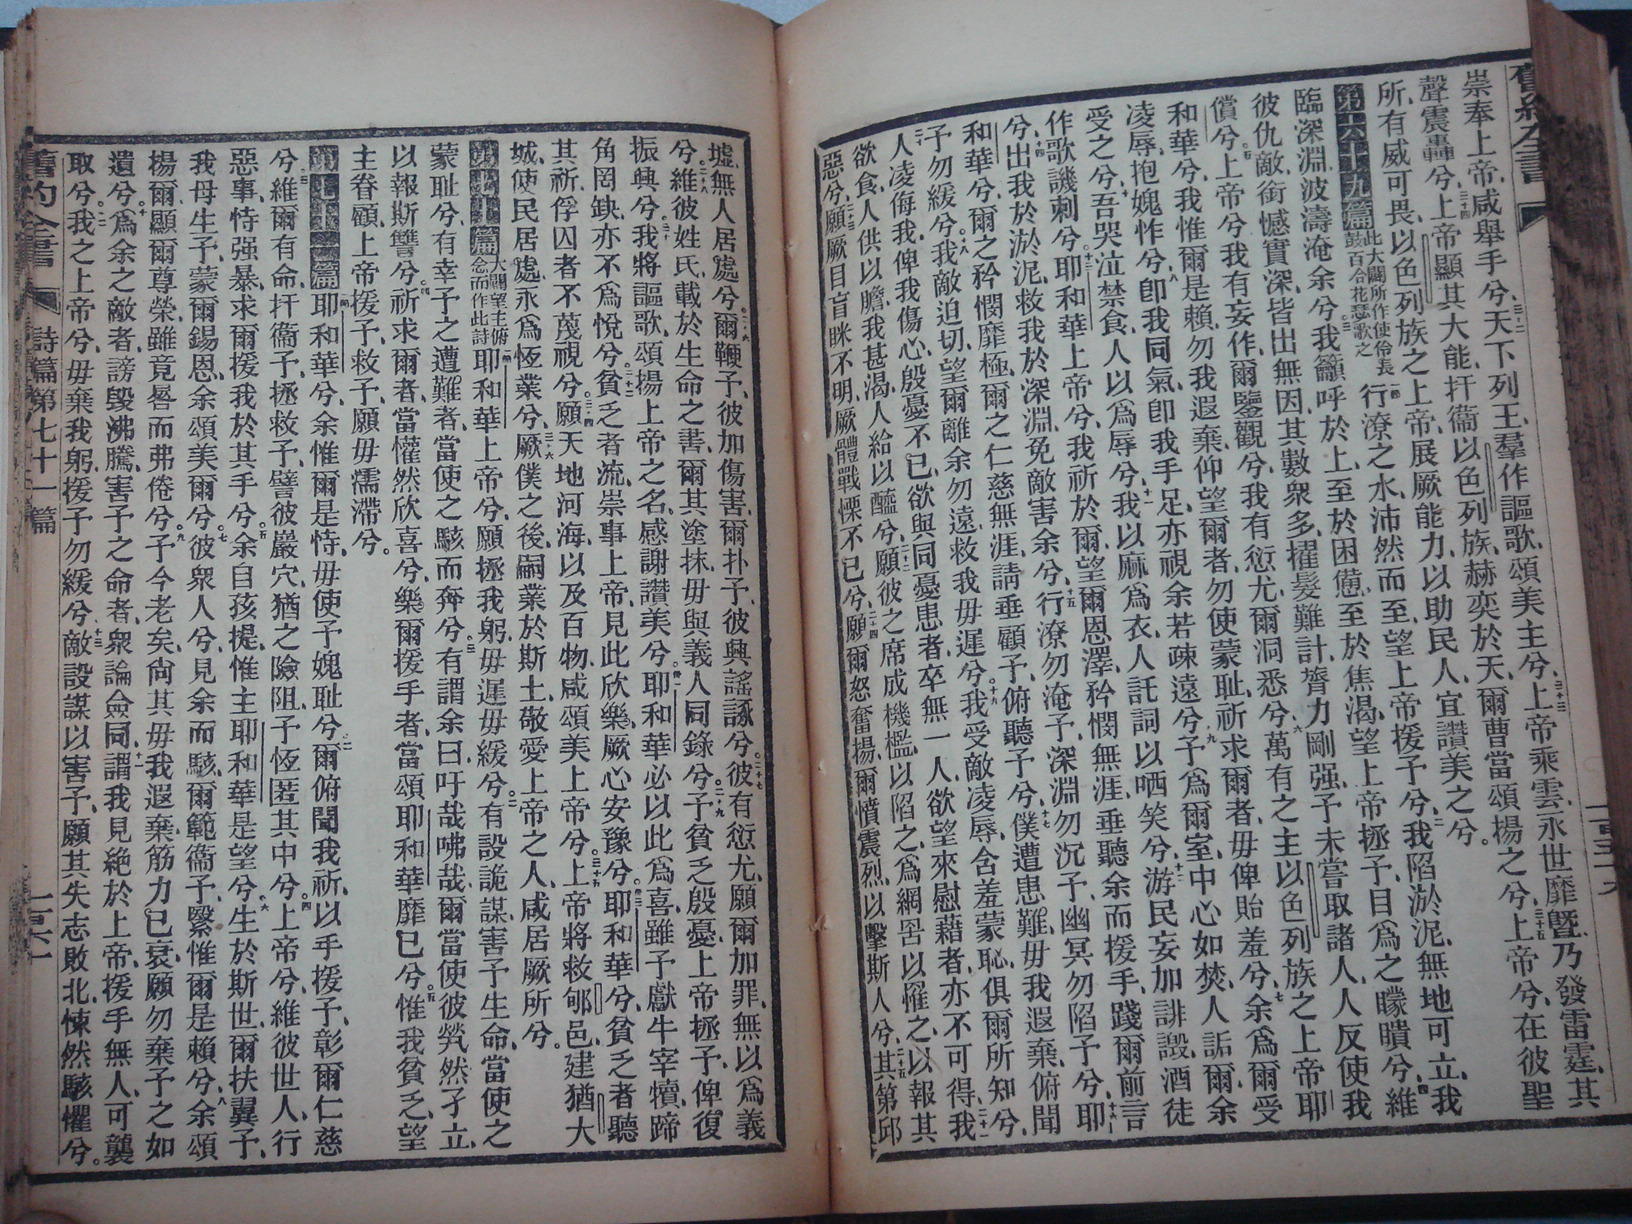 舊約全書
崇奉上帝、咸舉手兮、三十二天下列王、羣作謳歌、頌美主兮、三十三上帝乘雲、永世靡曁、乃發雷霆、其
聲震轟兮、三十四上帝顯其大能、扞衞以色列族、赫奕於天、爾曹當頌揚之兮、三十五上帝兮、在彼聖
所、有威可畏、以色列族之上帝、展厥能力、以助民人、宜讚美之兮。
第六十九篇 此大闢所作使伶長鼓百合花瑟歌之 一行潦之水、沛然而至、望上帝援予兮、二我陷淤泥、無地可立、我
臨深淵、波濤淹余兮、三我籲呼於上、至於困憊、至於焦渴、望上帝拯予、目爲之矇瞶兮、四維
彼仇敵、銜憾實深、皆出無因、其數衆多、擢髮難計、膂力剛强、予未嘗取諸人、人反使我
償兮、五上帝兮、我有妄作、爾鑒觀兮、我有愆尤、爾洞悉兮、六萬有之主、以色列族之上帝耶
和華兮、我惟爾是賴、勿我遐棄、仰望爾者、勿使蒙耻、祈求爾者、毋俾貽羞兮、七余爲爾受
凌辱、抱媿怍兮、八卽我同氣、卽我手足、亦視余若疎遠兮、九予爲爾室、中心如焚、人詬爾、余
受之兮、十吾哭泣禁食、人以爲辱兮、十一我以麻爲衣、人託詞以哂笑兮、十二游民妄加誹譭、酒徒
作歌譏刺兮、十三耶和華上帝兮、我祈於爾、望爾恩澤、矜憫無涯、垂聽余而援手、踐爾前言
兮、十四出我於淤泥、救我於深淵、免敵害余兮、十五行潦勿淹予、深淵勿沉予、幽冥勿陷予兮、十六耶
和華兮、爾之矜憫靡極、爾之仁慈無涯、請垂顧予、俯聽予兮、十七僕遭患難、毋我遐棄、俯聞
予勿緩兮、十八我敵迫切、望爾離余勿遠、救我毋遲兮、十九我受敵凌辱、含羞蒙恥、俱爾所知兮、
二十人凌侮我、俾我傷心、殷憂不已、欲與同憂患者、卒無一人、欲望來慰藉者、亦不可得、二十一我
欲食、人供以膽、我甚渴、人給以醯兮、二十二願彼之席、成機檻以陷之、爲網罟以罹之、以報其
惡兮、二十三願厥目盲眯不明、厥體戰慄不已兮、二十四願爾怒奮揚、爾憤震烈、以擊斯人兮、二十五其第邱
墟、無人居處兮、二十六爾鞭予、彼加傷害、爾扑予、彼興謠諑兮、二十七彼有愆尤、願爾加罪、無以爲義
兮、二十八維彼姓氏、載於生命之書、爾其塗抹、毋與義人同錄兮、二十九予貧乏殷憂、上帝拯予、俾復
振興兮、三十我將謳歌、頌揚上帝之名、感謝讚美兮、三十一耶和華必以此爲喜、雖予獻牛宰犢、蹄
角罔缺、亦不爲悅兮、三十二貧乏者流、崇事上帝、見此欣樂、厥心安豫兮、三十三耶和華兮、貧乏者聽
其祈、俘囚者不蔑視兮、三十四願天地河海、以及百物、咸頌美上帝兮、三十五上帝將救郇邑、建猶大
城、使民居處、永爲恆業兮、三十六厥僕之後、嗣業於斯土、敬愛上帝之人、咸居厥所兮。
第七十篇 大闢望主俯念而作此詩 一耶和華上帝兮、願拯我躬、毋遲毋緩兮、二有設詭謀、害予生命、當使之
蒙耻兮、有幸予之遭難者、當使之駭而奔兮、三有謂余曰、吁哉咈哉、爾當使彼煢然孑立、
以報斯讐兮、四祈求爾者、當懽然欣喜兮、樂爾援手者、當頌耶和華靡已兮、五惟我貧乏、望
主眷顧、上帝援予、救予、願毋濡滯兮。
第七十一篇 一耶和華兮、余惟爾是恃、毋使予媿耻兮、二爾俯聞我祈、以手援予、彰爾仁慈
兮、三維爾有命、扞衞予、拯救予、譬彼巖穴、猶之險阻、予恆匿其中兮、四上帝兮、維彼世人、行
惡事、恃强暴、求爾援我於其手兮、五余自孩提、惟主耶和華是望兮、六生於斯世、爾扶翼予、
我母生予、蒙爾錫恩、余頌美爾兮、七彼衆人兮、見余而駭、爾範衞予、繄惟爾是賴兮、八余頌
揚爾、顯爾尊榮、雖竟晷而弗倦兮、九予今老矣、尙其毋我遐棄、筋力已衰、願勿棄予之如
遺兮、十爲余之敵者、謗毀沸騰、害予之命者、衆論僉同、十一謂我見絕於上帝、援手無人、可襲
取兮、十二我之上帝兮、毋棄我躬、援予勿緩兮、十三敵設謀以害予、願其失志敗北、悚然駭懼兮。
舊約全書 詩篇第七十一篇 二百六一